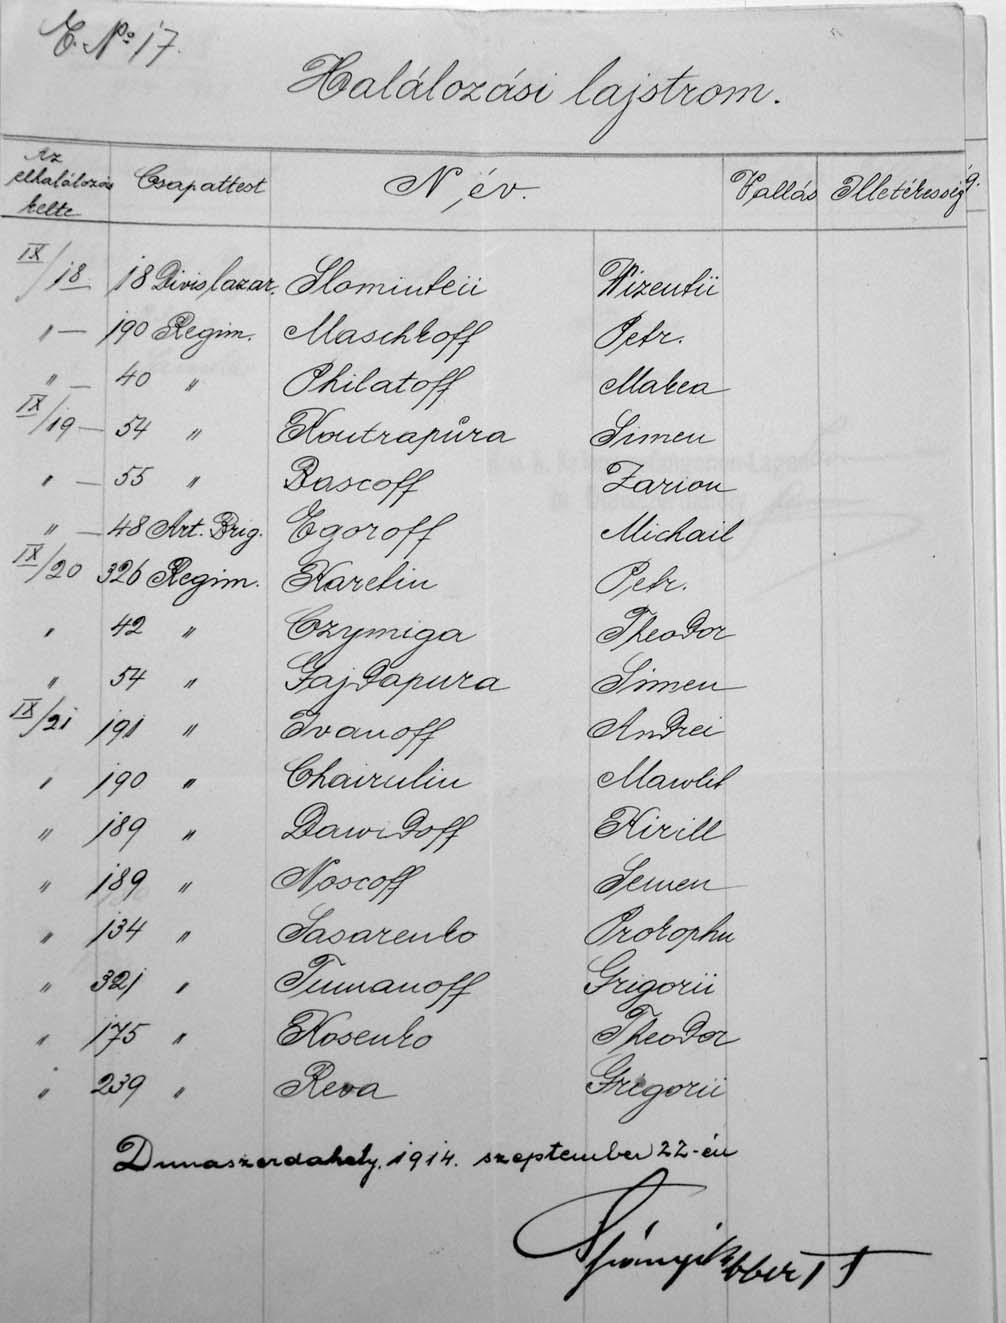 E. No 17.
Halálozási lajstrom.
Az elhalálozás kelte Csapattest Név. Vallás Illetékesség
IX/18 — 18 Divis lazar. Slomintcii Wizentii
" — 190 Regim. Maschkoff Petr.
" — 40 " Philatoff Makea
IX/19 — 54 " Koutrapúra Simen
" — 55 " Bascoff Zarion
" — 48 Art. Brig. Egoroff Michail
IX/20 326 Regim. Karelin Petr.
" 42 " Czymiga Theodor
" 54 " Gajdapura Simen
IX/21 191 " Ivanoff Andrei
" 190 " Chairulin Mawlet
" 189 " Dawidoff Kirill
" 189 " Noscoff Semen
" 134 " Sasarenko Prokophu
" 321 " Tumanoff Grigorii
" 175 " Kosenko Theodor
" 239 " Reva Grigorii
Dunaszerdahely, 1914. szeptember 22-én